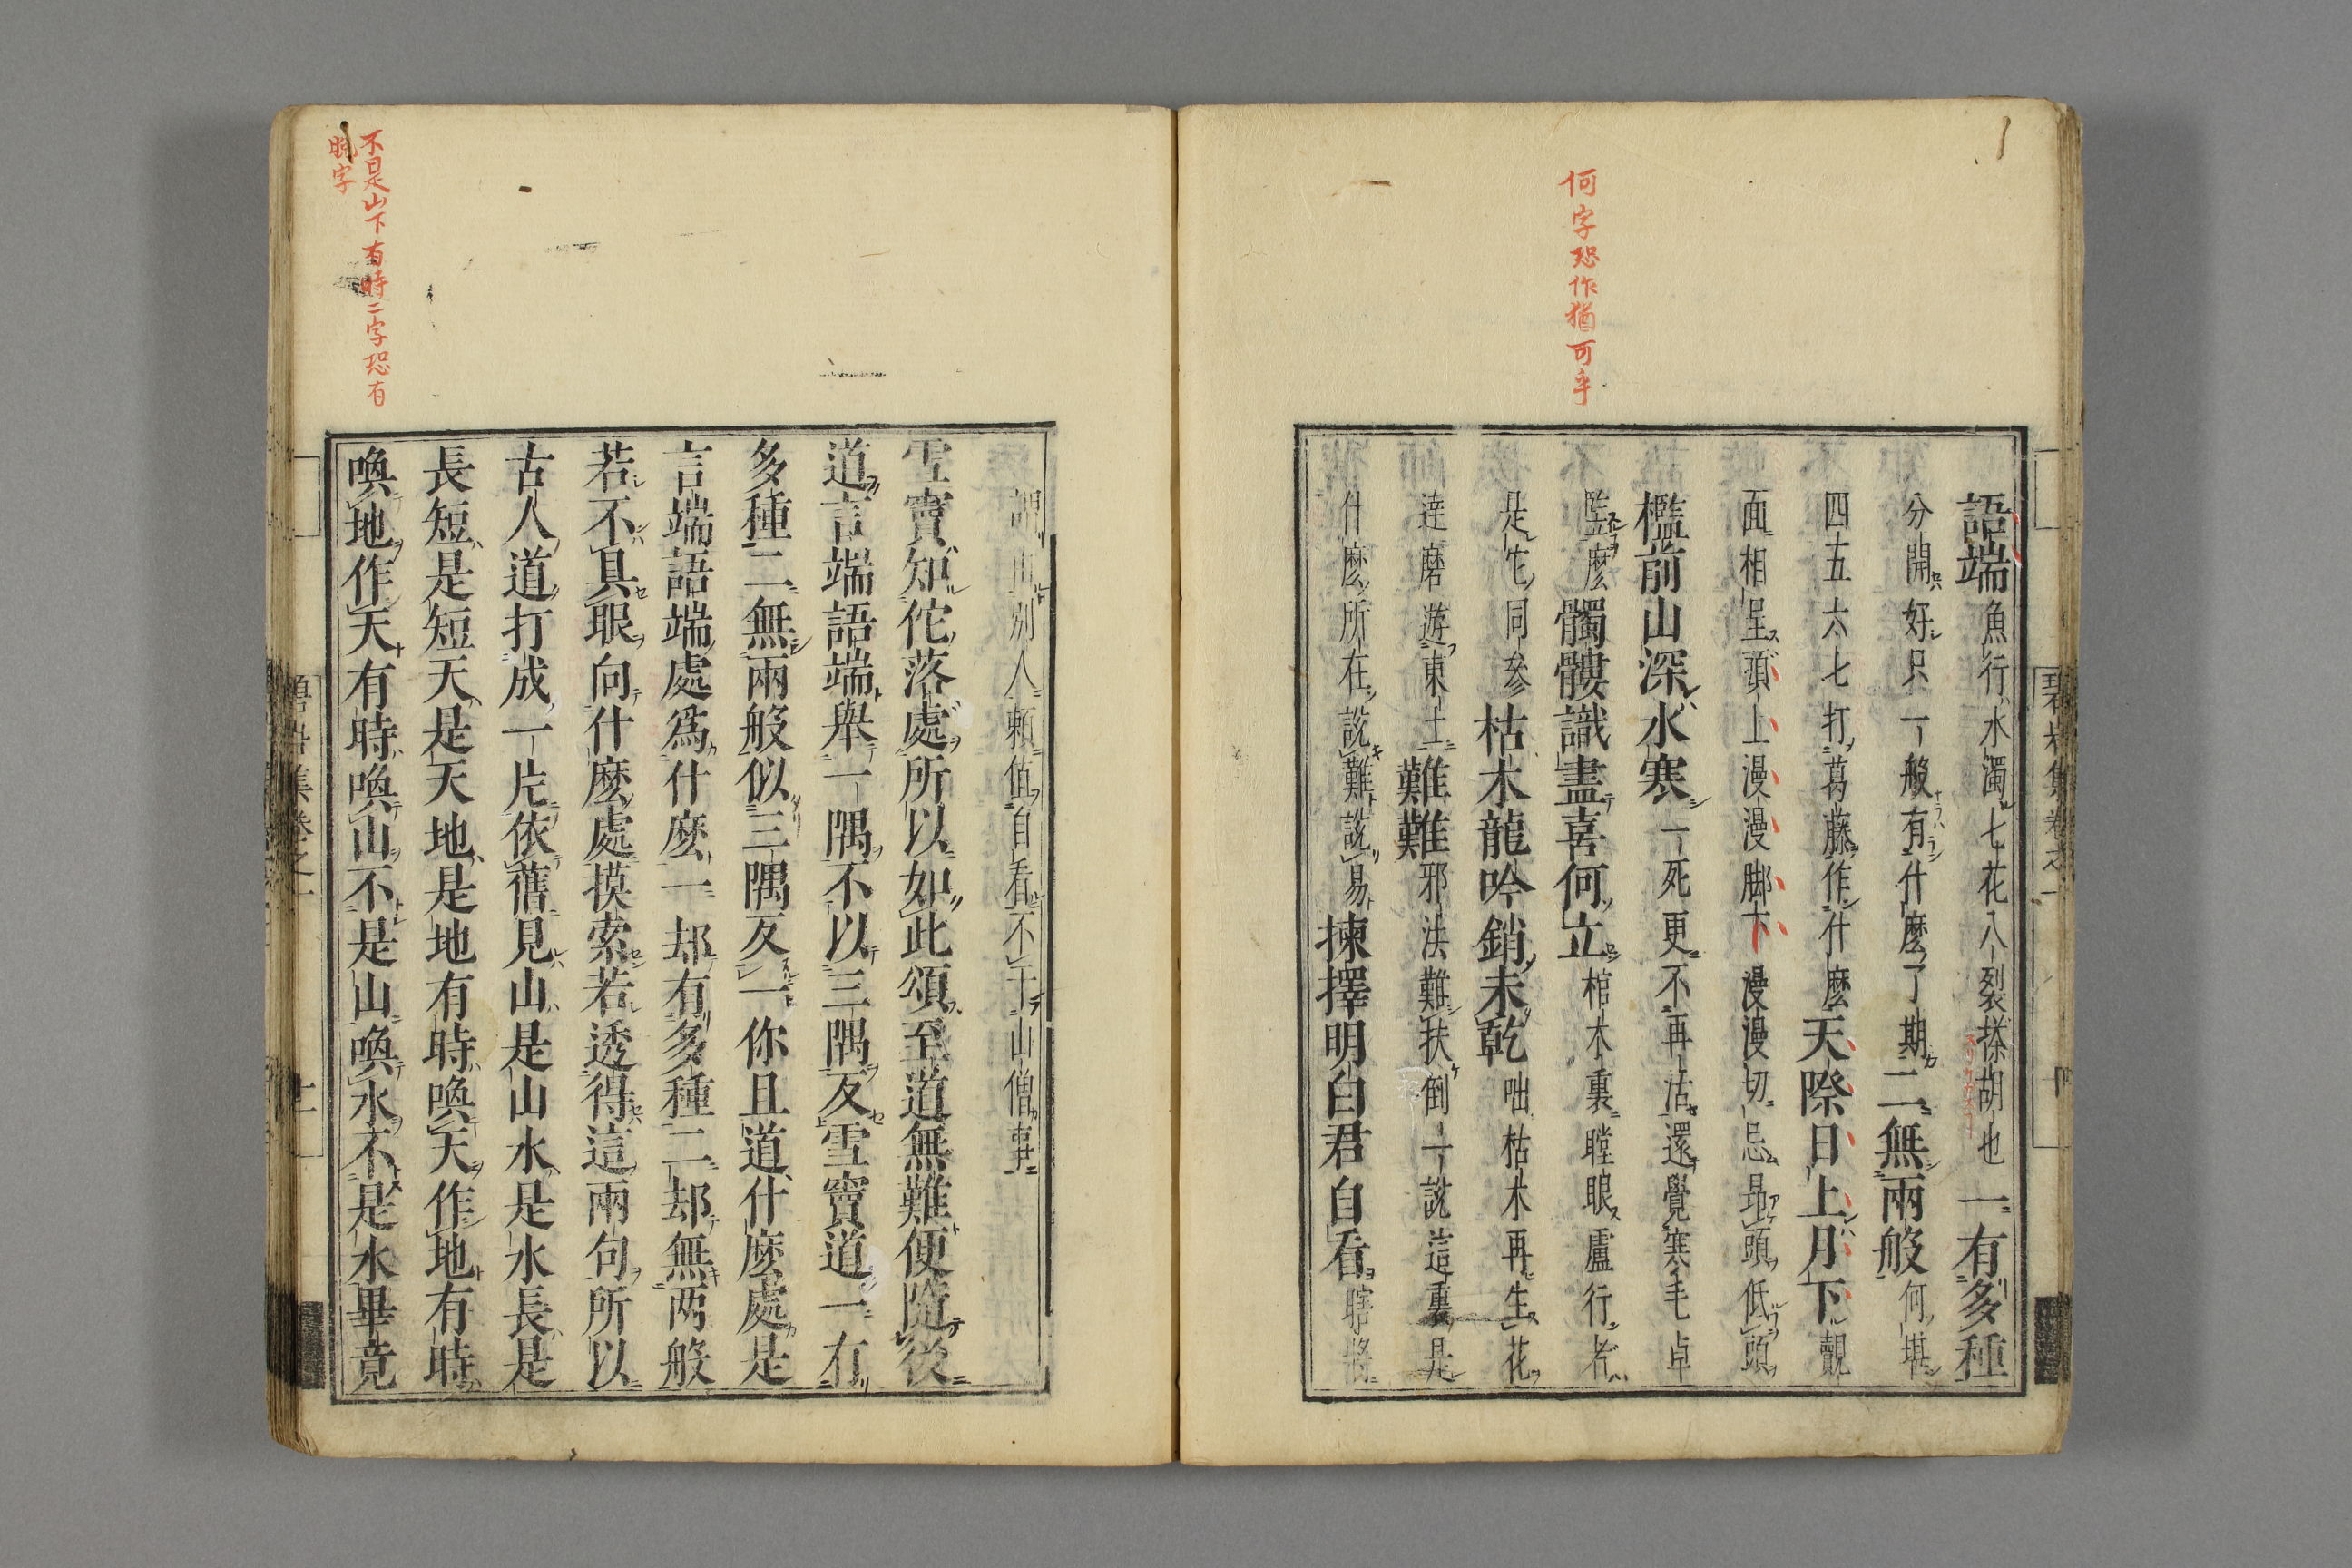 何字恐作猶可乎
語端魚行水濁七花八裂搽胡也一有多種
分開好只一般有什麼了期二無兩般何堪
四五六七打葛藤作什麼天際日上月下覿
面相呈頭上漫漫脚下漫漫切忌昂頭低頭
檻前山深水寒一死更不再活還覺寒毛卓
豎麼髑髏識盡喜何立棺木裏瞠眼盧行者
是它同參枯木龍吟銷未乾咄枯木再生花
達磨遊東土難難邪法難扶倒一說這裏是
什麼所在說難說易揀擇明白君自看瞎將
碧岩集卷之一
不是山下有時二字恐有
脫字
謂由別人賴值自看不干山僧事
雪竇知佗落處所以如此頌至道無難便隨後
道言端語端舉一隅不以三隅反雪竇道一有
多種二無兩般似三隅反一你且道什麼處是
言端語端處爲什麼一却有多種二却無兩般
若不具眼向什麼處摸索若透得這兩句所以
古人道打成一片依舊見山是山水是水長是
長短是短天是天地是地有時喚天作地有時
喚地作天有時喚山不是山喚水不是水畢竟